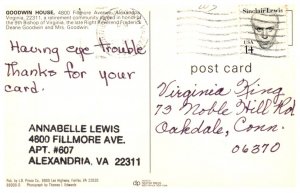 GOODWIN HOUSE, 4800 Fillmore Avenue, Alexandria,
Virginia, 22311, a retirement community named in honor of
the 8th Bishop of Virginia, the late Right Reverend Frederick
Deane Goodwin and Mrs. Goodwin.
Having eye trouble
Thanks for your
card.
ANNABELLE LEWIS
4800 FILLMORE AVE.
APT. #607
ALEXANDRIA, VA 22311
Sinclair Lewis
USA 14
post card
Virginia King
73 Noble Hill Rd
Oakdale, Conn.
06370